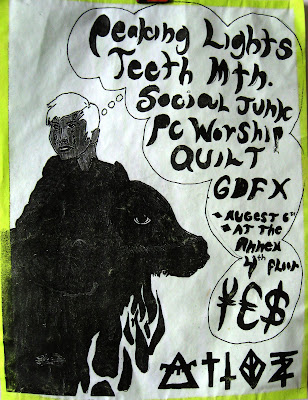 Peaking Lights
Teeth Mtn.
Social Junk
PC Worship
QUILT
GDFX
* AUGEST 6th
* AT the
Annex
4th floor
¥€$